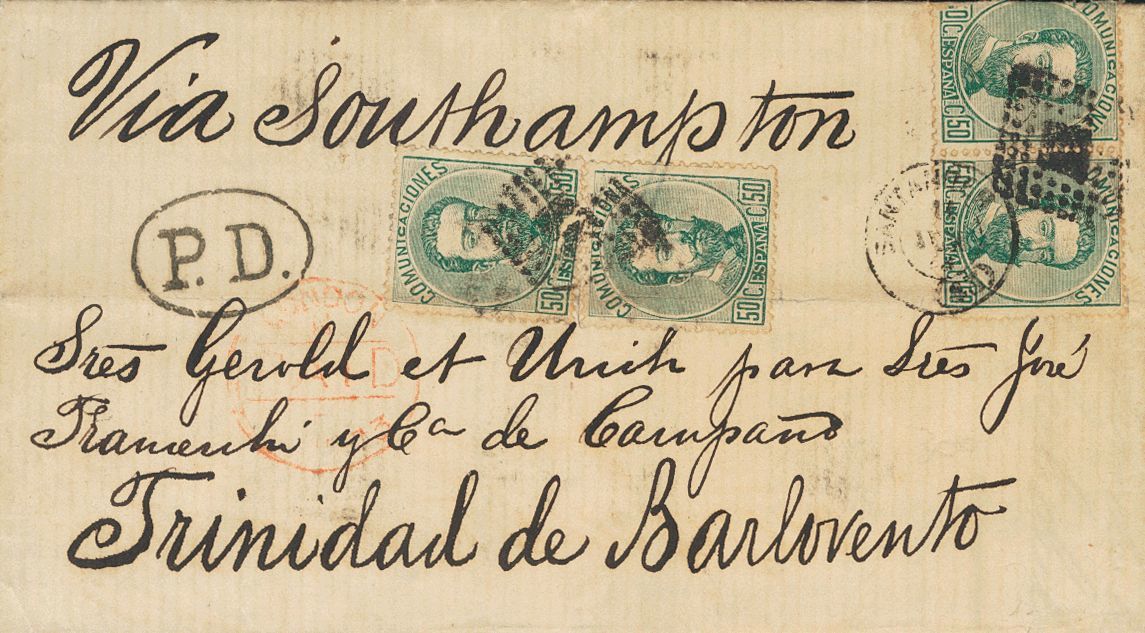 Via Southampton
COMUNICACIONES
50 C. ESPAÑA C. 50
COMUNICACIONES
50 C. ESPAÑA C. 50
COMUNICACIONES
50 C. ESPAÑA C. 50
COMUNICACIONES
C. ESPAÑA C. 50
P.D.
Srēs Gerold et Urich para Srēs José
y Cª de Campano
Trinidad de Barlovento